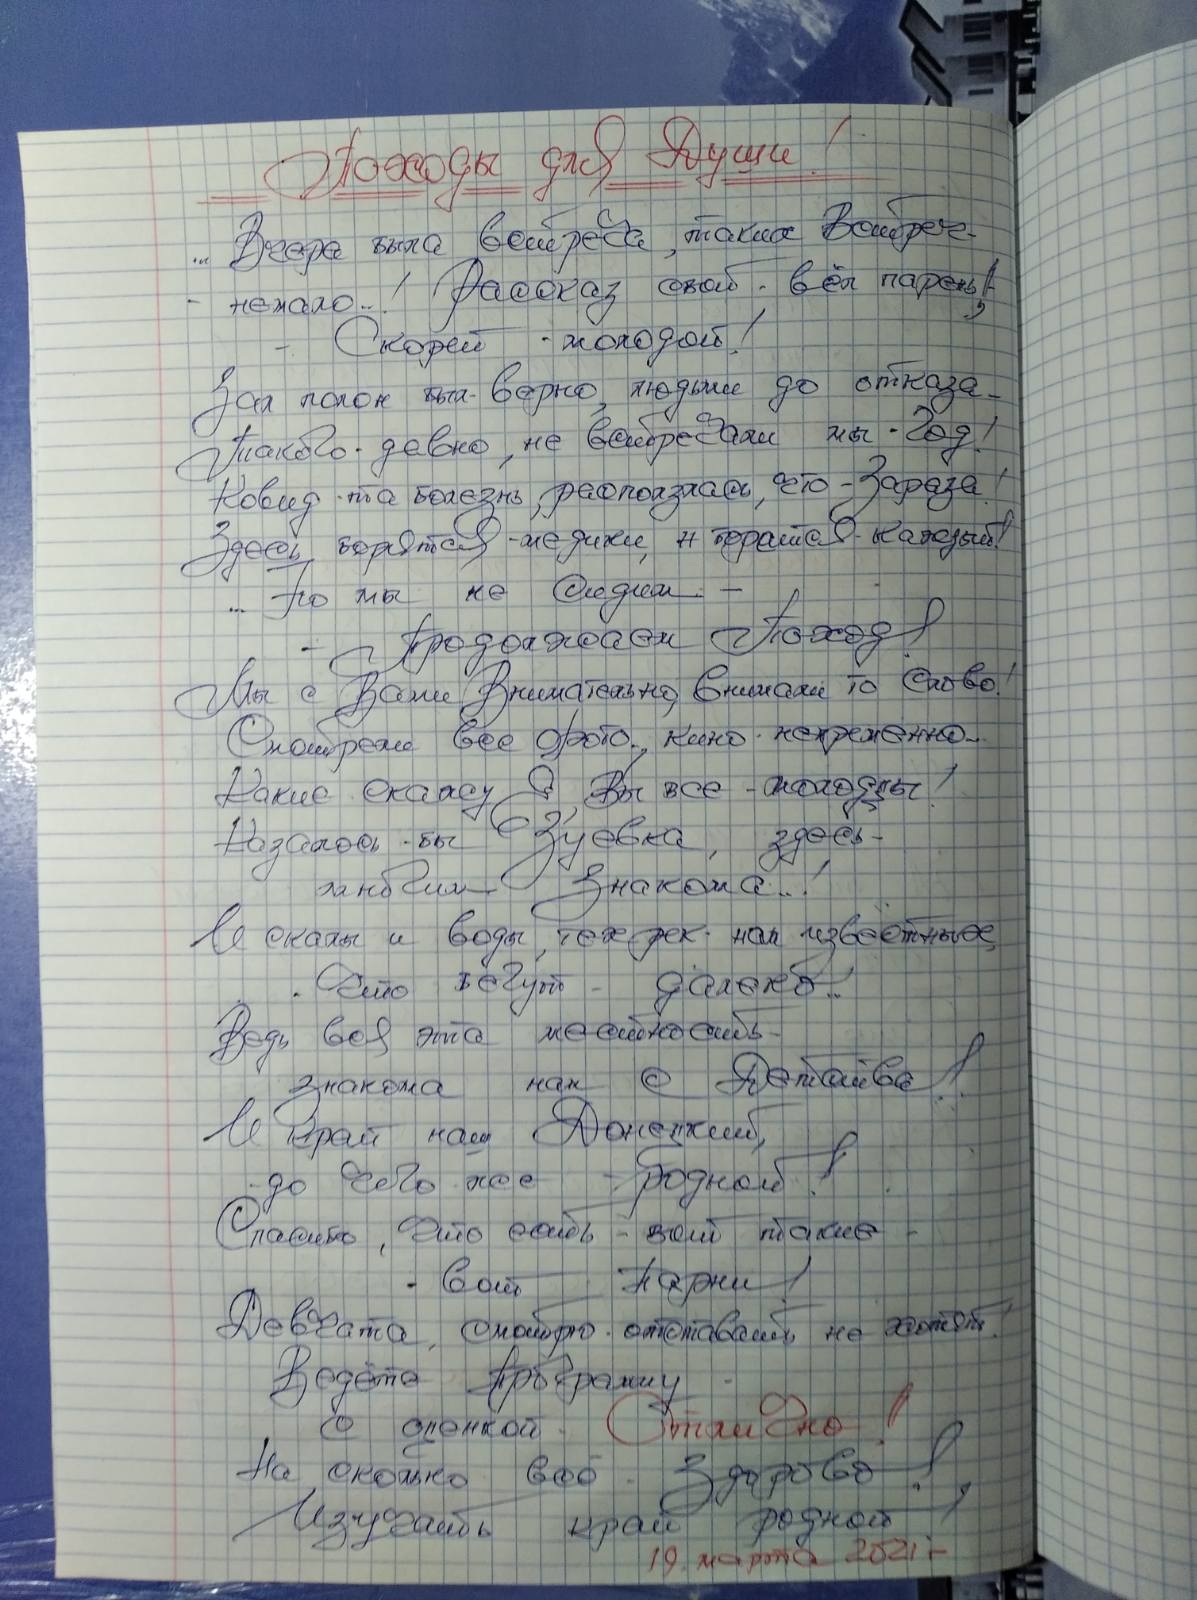 Походы для Души!
... Вчера была встреча, таких Встреч-
- немало...! Рассказ свой - вёл парень!,
- Скорей - молодой!
Зал полон был - верно, людьми до отказа -
Такого - давно, не встречали мы - Год!
Ковид - та болезнь, расползлась, что - Зараза!
Здесь, борятся - медики, и борится - каждый!
... Но мы не сидим -
- Продолжаем Поход!
Мы с Вами Внимательно, внимали то слово!
Смотрели все фото, кино - непременно...
Какие скажу Я, Вы все - молодцы!
Казалось - бы Зуевка, здесь -
многим - Знакома...!
И скалы и воды, тех рек - нам известных,
. Что бегут - далеко...
Ведь вся эта местность -
знакома нам с Детства!
И край наш Донецкий,
- до чего же - родной!
Спасибо, что есть - вот такие -
- вот Парни!
Девчата, смотрю - отставать не хотят!
Ведёте Программу -
с оценкой - Отлично!
На сколько всё - Здорово!
Изучать край родной!
19. марта 2021 г.